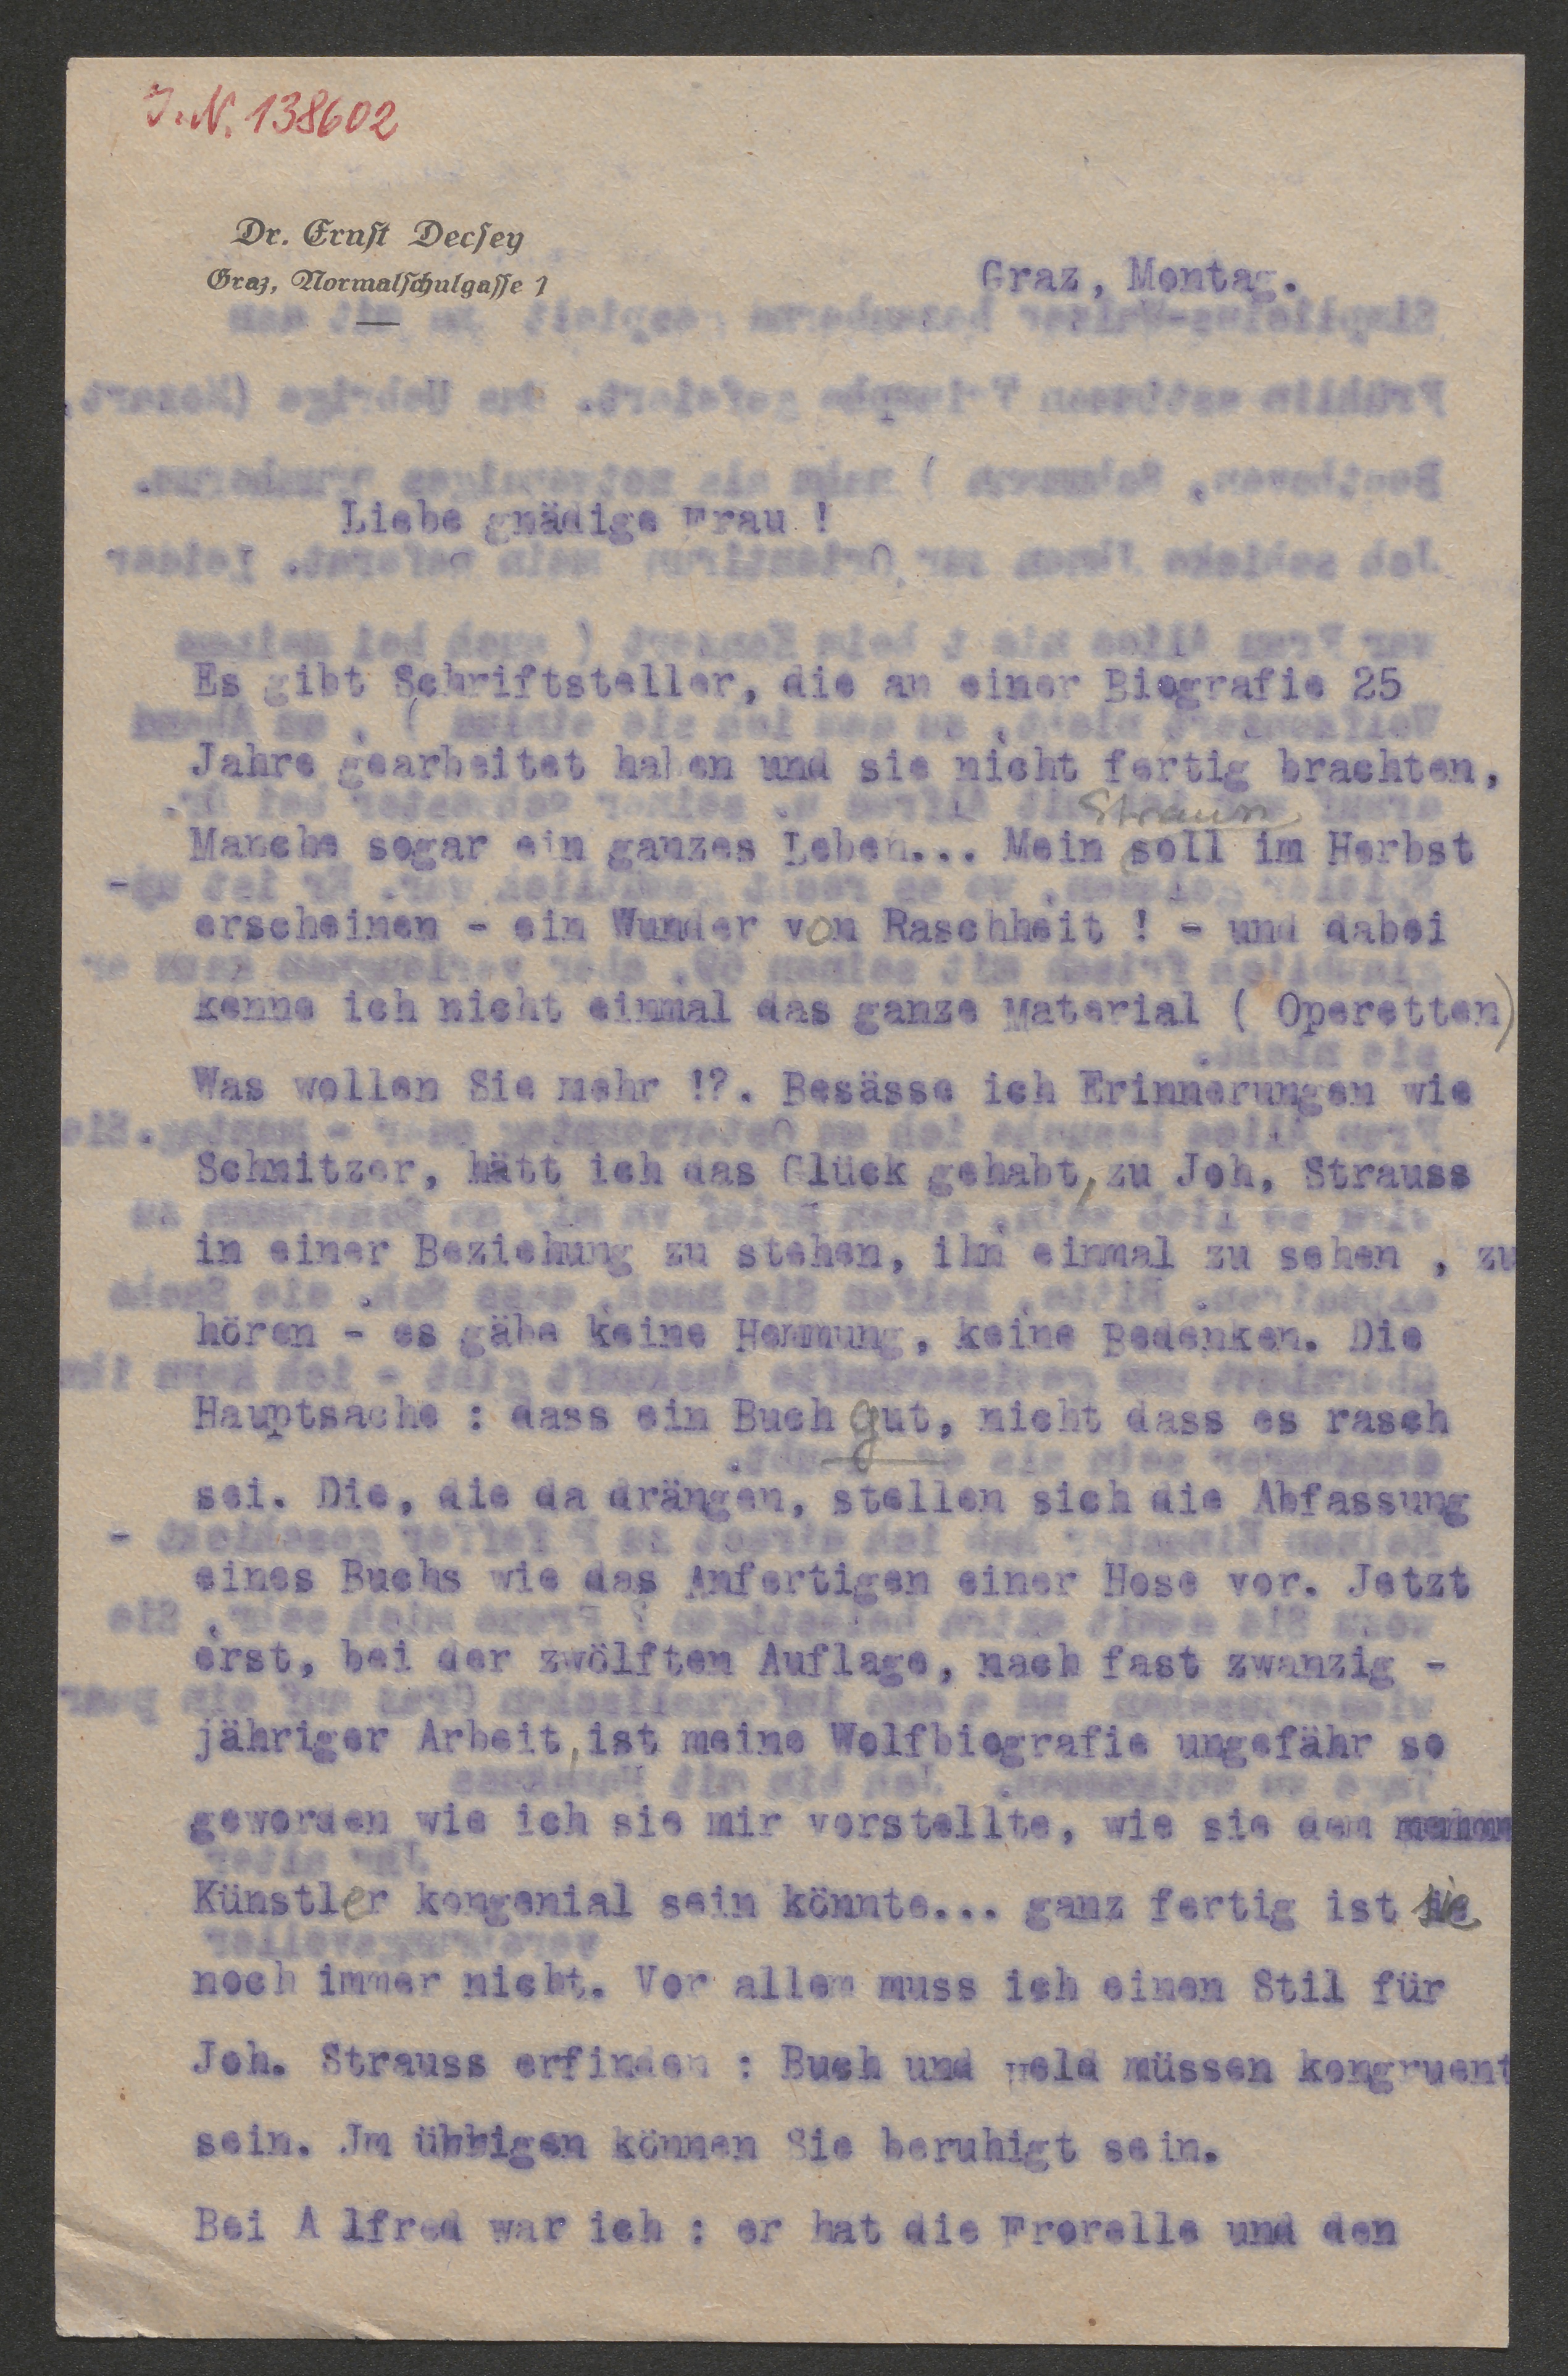 J.N. 138602
Dr. Ernst Decsey
Graz, Normalschulgasse 1
Graz, Montag.
Liebe gnädige Frau !
Es gibt Schriftsteller, die an einer Biografie 25
Jahre gearbeitet haben und sie nicht fertig brachten,
Manche sogar ein ganzes Leben... Mein Strauss soll im Herbst
erscheinen - ein Wunder von Raschheit ! - und dabei
kenne ich nicht einmal das ganze Material ( Operetten)
Was wollen Sie mehr !?. Besässe ich Erinnerungen wie
Schnitzer, hätt ich das Glück gehabt, zu Joh, Strauss
in einer Beziehung zu stehen, ihn einmal zu sehen , zu
hören - es gäbe keine Hemmung, keine Bedenken. Die
Hauptsache : dass ein Buch gut, nicht dass es rasch
sei. Die, die da drängen, stellen sich die Abfassung
eines Buchs wie das Anfertigen einer Hose vor. Jetzt
erst, bei der zwölften Auflage, nach fast zwanzig -
jähriger Arbeit, ist meine Wolfbiografie ungefähr so
geworden wie ich sie mir vorstellte, wie sie dem
Künstler kongenial sein könnte... ganz fertig ist sie
noch immer nicht. Vor allem muss ich einen Stil für
Joh. Strauss erfinden : Buch und Held müssen kongruent
sein. Jm übbigen können Sie beruhigt sein.
Bei A lfred war ich : er hat die Frorelle und den